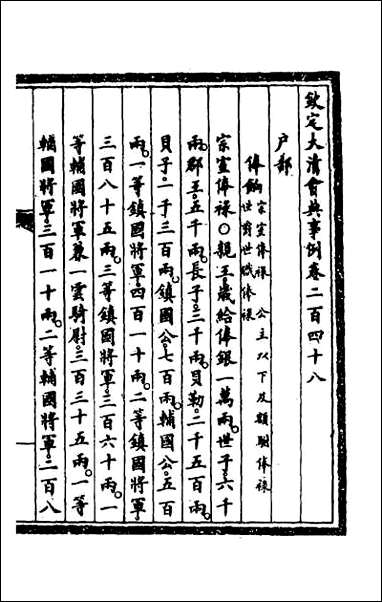 欽定大清會典事例卷二百四十八
户部
俸餉宗室俸祿　公主以下及額駙俸祿
世爵世職俸祿
宗室俸祿〇親王歲給俸銀一萬兩世子六千
兩郡王五千兩長子三千兩貝勒二千五百兩
貝子一千三百兩鎮國公七百兩輔國公五百
兩一等鎮國將軍四百一十兩二等鎮國將軍
三百八十五兩三等鎮國將軍三百六十兩一
等輔國將軍兼一雲騎尉三百三十五兩一等
輔國將軍三百一十兩二等輔國將軍二百八